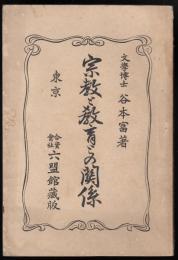 文學博士 谷本富著
宗教と教育との関係
東京
合資會社 六盟館蔵版